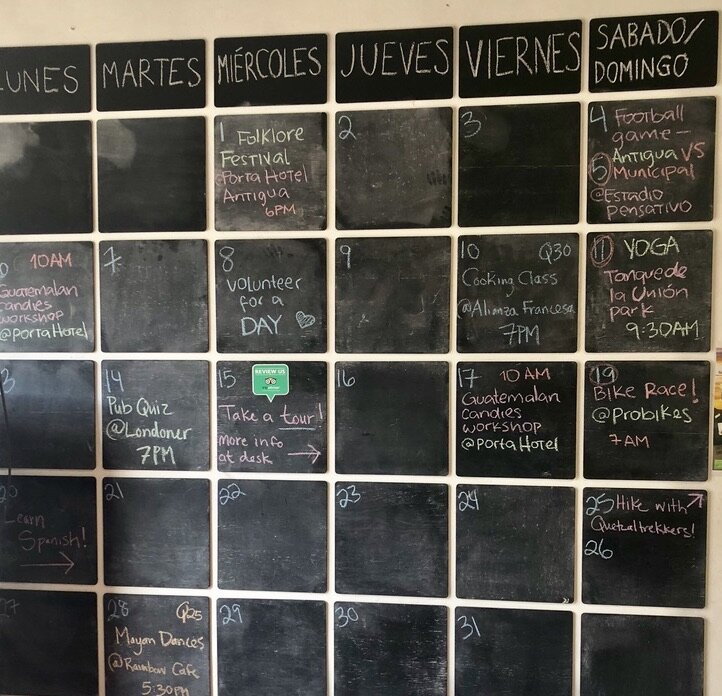 LUNES
MARTES
MIÉRCOLES
JUEVES
VIERNES
SABADO/
DOMINGO
1 Folklore
Festival
@Porta Hotel
Antigua
6PM
2
3
4 Football
game –
Antigua VS
5 Municipal
@Estadio
Pensativo
10AM
Guatemalan
candies
workshop
@Porta Hotel
7
8
Volunteer
for a
DAY ♡
9
10 Q30
Cooking Class
@Alianza Francesa
7PM
11 YOGA
Tanque de
la Unión
park
9:30AM
3
14
Pub Quiz
@Londoner
7PM
15
REVIEW US
Take a tour!
more info
at desk →
16
17 10 AM
Guatemalan
candies
workshop
@Porta Hotel
19
Bike Race!
@Probikes
7 AM
20
Learn
Spanish!
→
21
22
23
24
25 Hike with ↗
Quetzaltrekkers!
26
27
28 Q25
Mayan Dances
@Rainbow Cafe
5:30pm
29
30
31